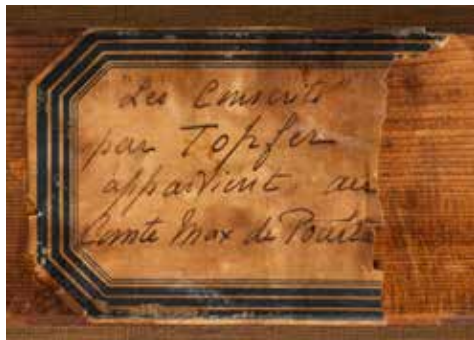 "Les Conscrits"
par Topfer
appartient au
Comte Max de